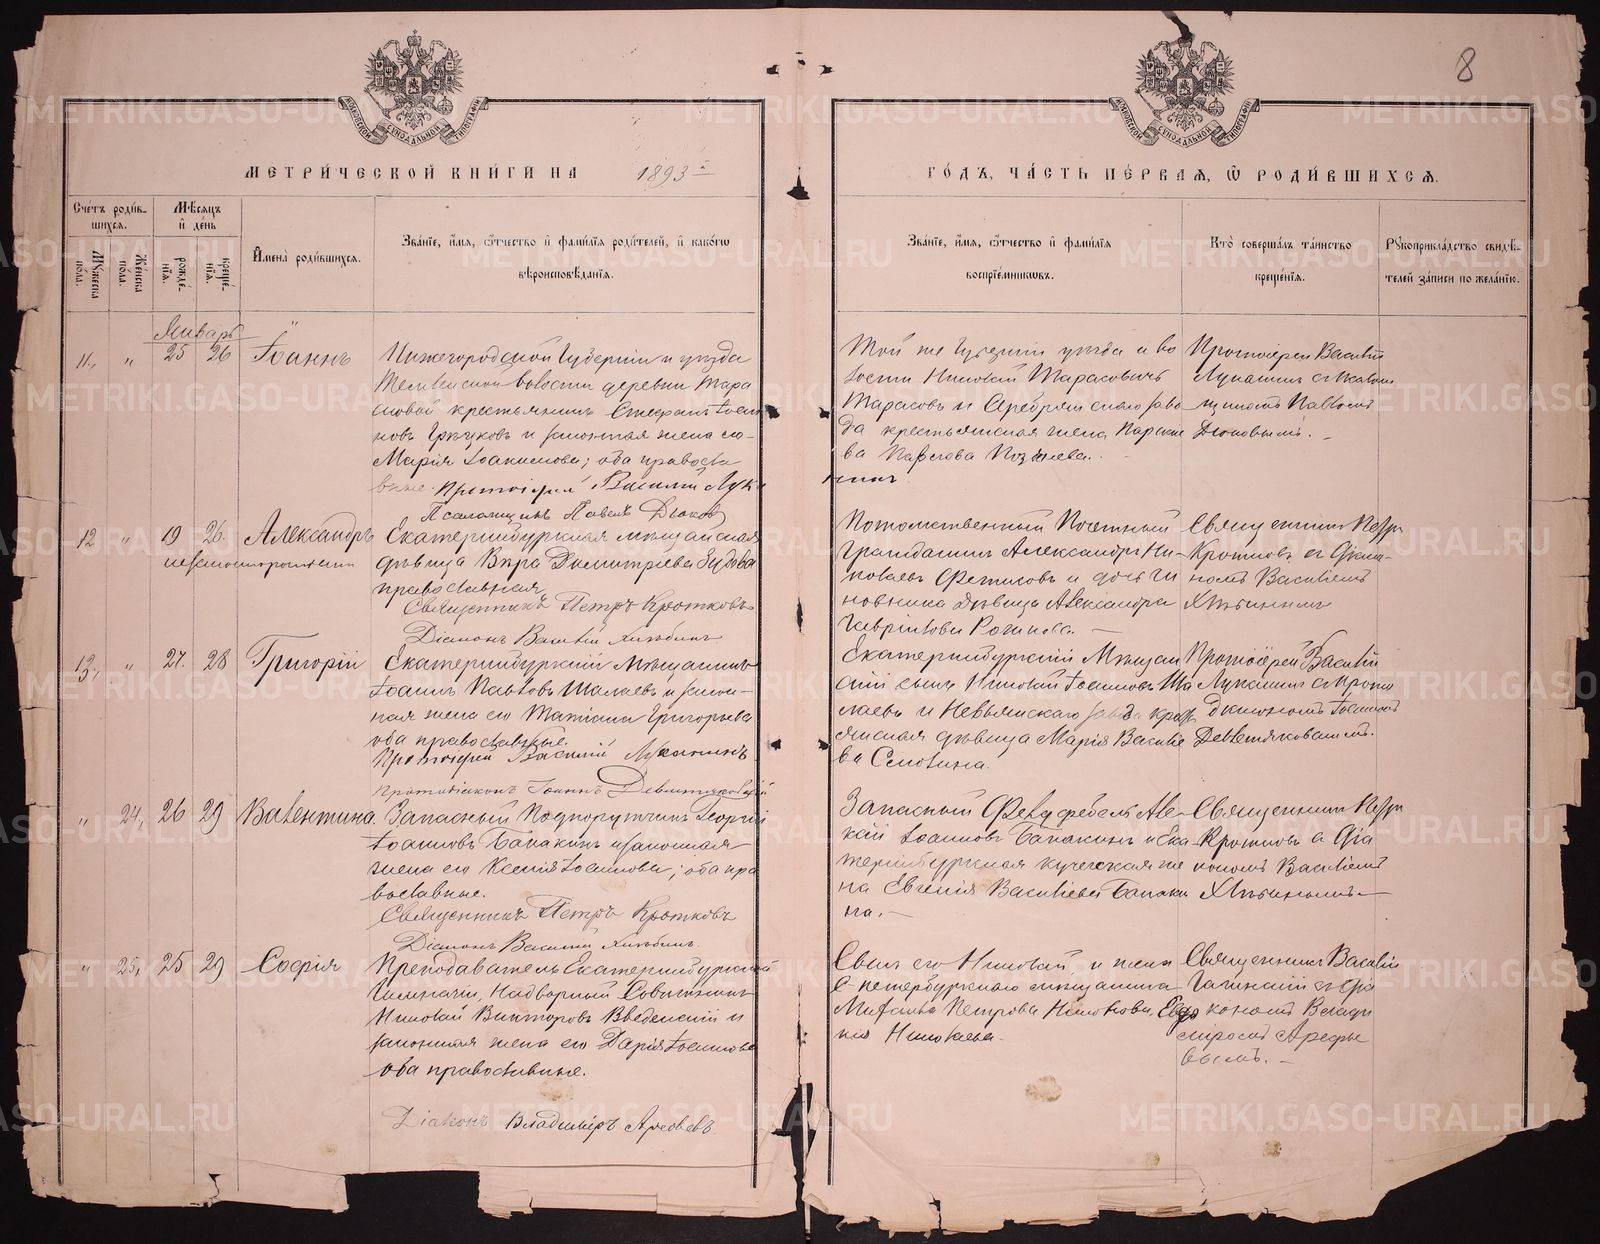 8
МОСКОВСКОЙ СѴНОДАЛЬНОЙ ТИПОГРАФІИ
МОСКОВСКОЙ СѴНОДАЛЬНОЙ ТИПОГРАФІИ
МЕТРИ́ЧЕСКОЙ КНИ́ГИ НА 1893 й
ГО́ДЪ, ЧА́СТЬ ПЕ́РВАЯ, Ѡ РОДИ́ВШИХСЯ.
Сче́тъ роди́вшихся.
Му́жеска по́ла.
Же́нска по́ла.
Мѣ́сяцъ и́ де́нь
рожде́нїя.
креще́нїя.
И҆мена̀ роди́вшихся.
Зва́нїе, и́мя, ѻ҆́тчество и҆ фами́лїя роди́телей, и҆ како́гѡ вѣроисповѣ́данїя.
Зва́нїе, и́мя, ѻ҆́тчество и҆ фами́лїя воспрїе́мникѡвъ.
Кто̀ соверша́лъ та́инство креще́нїя.
Рꙋкоприкла́дство свидѣ́телей за́писи по жела́нїю.
Январь
11, " 25 26 Іоаннъ
Нижегородской Губерніи и уѣзда
волости деревни Тара
совой крестьянинъ Стефанъ
и законная жена его
Марія Іоакимова; оба правосла
вные. Протоіерей Василій Лука
Псаломщикъ Павелъ Дьяков
Той же Губерніи уѣзда и во
лости Николай Тарасовичъ
Тарасовъ и Серебрянскаго заво
да крестьянская жена
ва Павлова
Протоіерей Василій
Лукашинъ съ псалом
щикомъ Павломъ
Дьяковымъ.
12 " 19 26. Александръ
незаконнорожденный
Екатеринбургская мѣщанская
дѣвица Вѣра Димитріева
православная
Священникъ Петръ Кротковъ
Діаконъ Василій Хлѣбинъ
Потомственный Почетный
Гражданинъ Александръ Ни-
колаевъ Фетисовъ и дочь чи
новника дѣвица Александра
Гаврилова
Священникъ Петръ
Кротковъ съ діако-
номъ Василіемъ
Хлѣбинымъ
13, " 27. 28 Григорій
Екатеринбургскій Мѣщанинъ
Іоаннъ Павловъ Шалаевъ и закон-
ная жена его Татіана Григорьева
оба православные.
Протоіерей Василій Лукашинъ
Протодіаконъ Іоаннъ
Екатеринбургскій Мѣщан
скій сынъ Николай Іоанновъ Ша
лаевъ и Невьянскаго завода крестьянская дѣвица Марія Василье
ва
Протоіерей Василій
Лукашинъ съ прото
діакономъ Іоанномъ
" 24, 26 29 Валентина.
Запасный Подпоручикъ Георгій
Іоанновъ Бабакинъ и законная
жена его Ксенія Іоаннова; оба пра
вославные.
Священникъ Петръ Кротковъ
Діаконъ Василій Хлѣбинъ.
Запасный Фельдфебель Але-
ксій Іоанновъ Бабакинъ и Ека
теринбургская купеческая же
на Евгенія Васильева Бабаки
на. —
Священникъ Петръ
Кротковъ съ діа
кономъ Василіемъ
Хлѣбинымъ. —
" 25, 25 29 Софія
Преподаватель Екатеринбургской
Гимназіи, Надворный Совѣтникъ
Николай Викторовъ Введенскій и
законная жена его Дарія Іоаннова
оба православные.
Діаконъ Владиміръ Арефьевъ
Сынъ его Николай, и жена
С-петербургскаго мѣщанина
Петрова Евдо
кія Николаева.
Священникъ Василій
съ діа
кономъ Влади
міромъ Арефье
вымъ. —